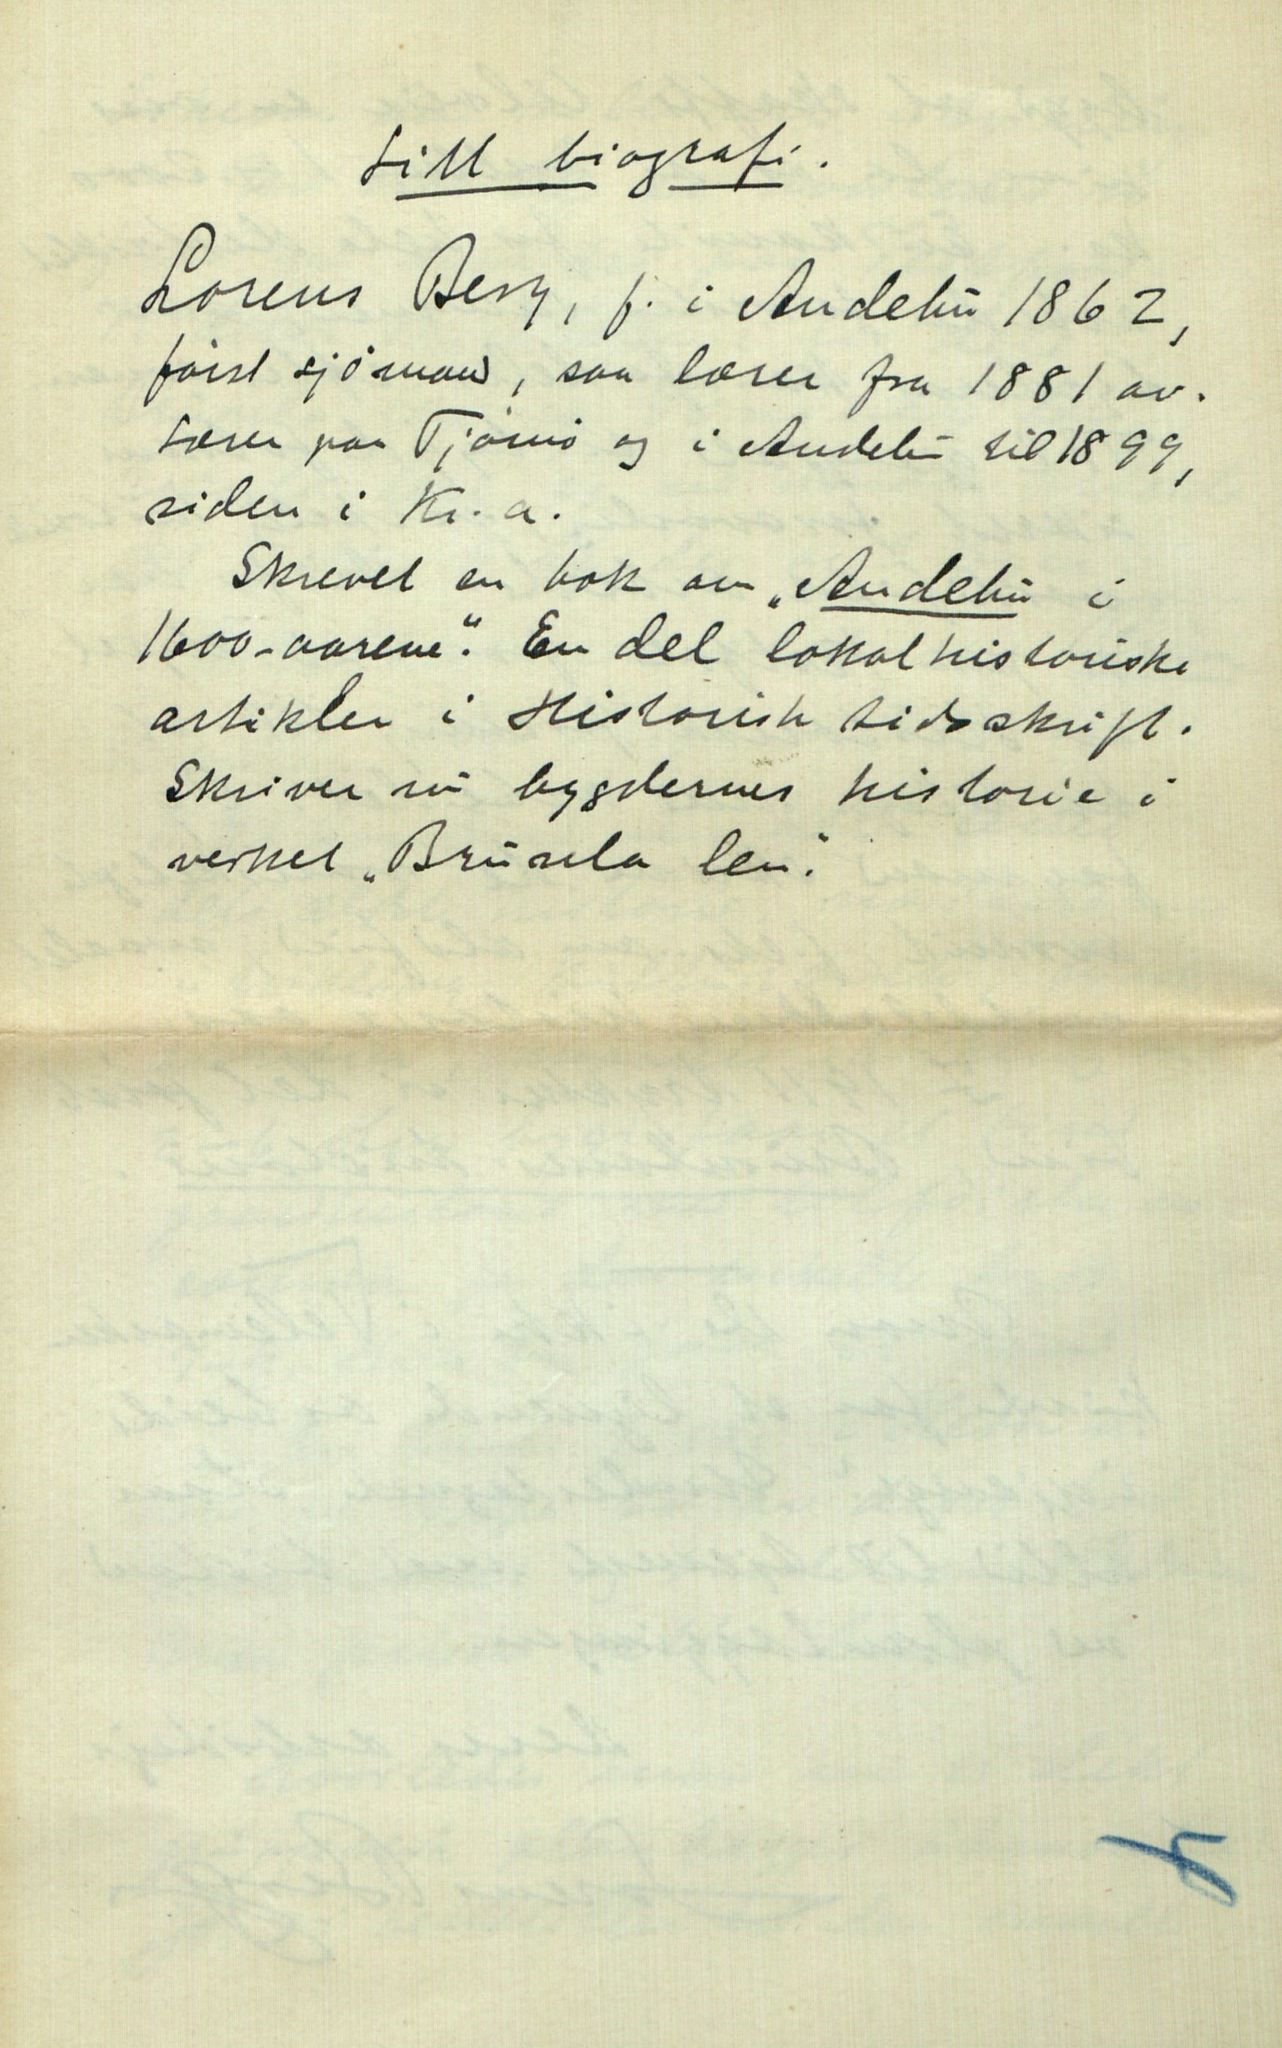 Litt biografi.
Lorens Berg, f. i Andebu 1862,
först sjömand, saa lærer fra 1881 av.
Lærer paa Tjömö og i Andebu til 1899,
siden i Kr.a.
Skrevet en bok om „Andebu i
1600-aarene“. En del lokalhistoriske
artikler i Historisk tidsskrift.
Skriver nu bygdernes historie i
verket „Brunla len“.